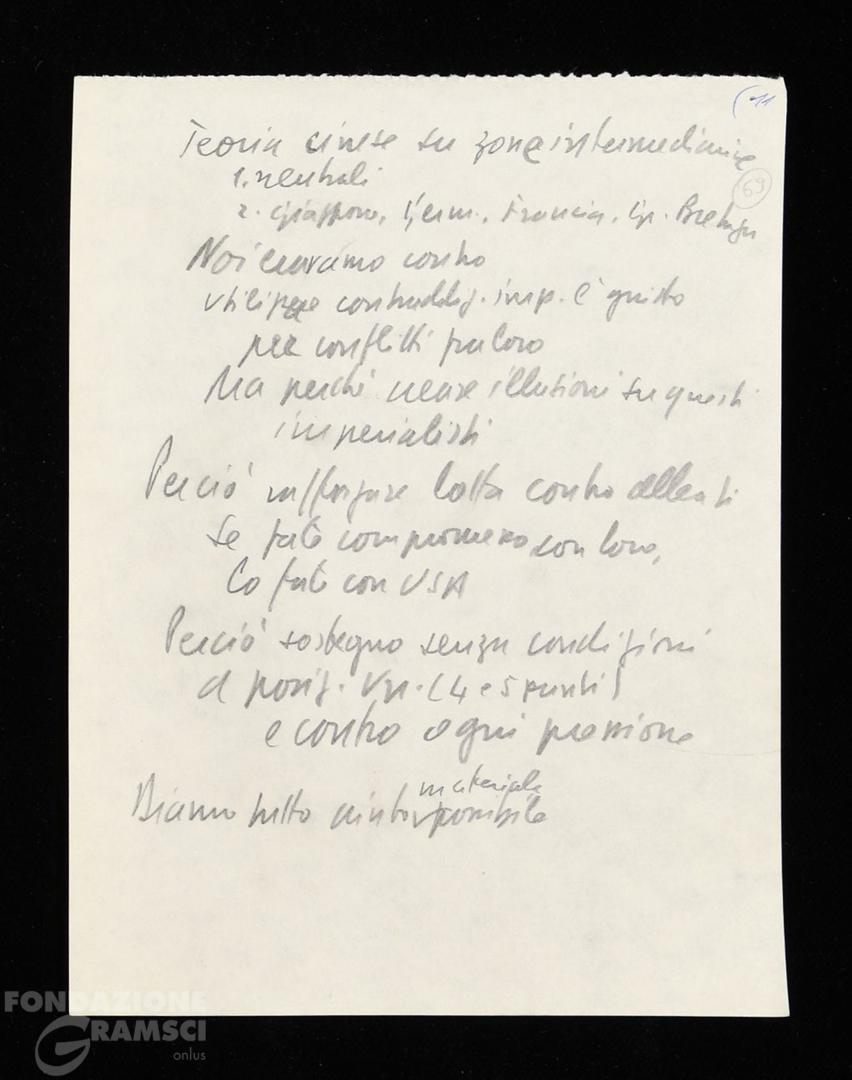 (11
69
Teoria cinese su zone intermediarie
1. neutrali
2. Giappone, Germ., Francia, Gr. Bretagn
Noi eravamo contro
utilizzare contraddiz. imp. è giusto
per conflitti fra loro
Ma perché creare illusioni su questi
imperialisti
Perciò rafforzare lotta contro alleati
Se fate compromesso con loro,
lo fate con USA
Perciò sostegno senza condizioni
a posiz. Vn. (4 e 5 punti)
e contro ogni pressione
materiale
Diamo tutto aiuto possibile
FONDAZIONE
GRAMSCI
onlus